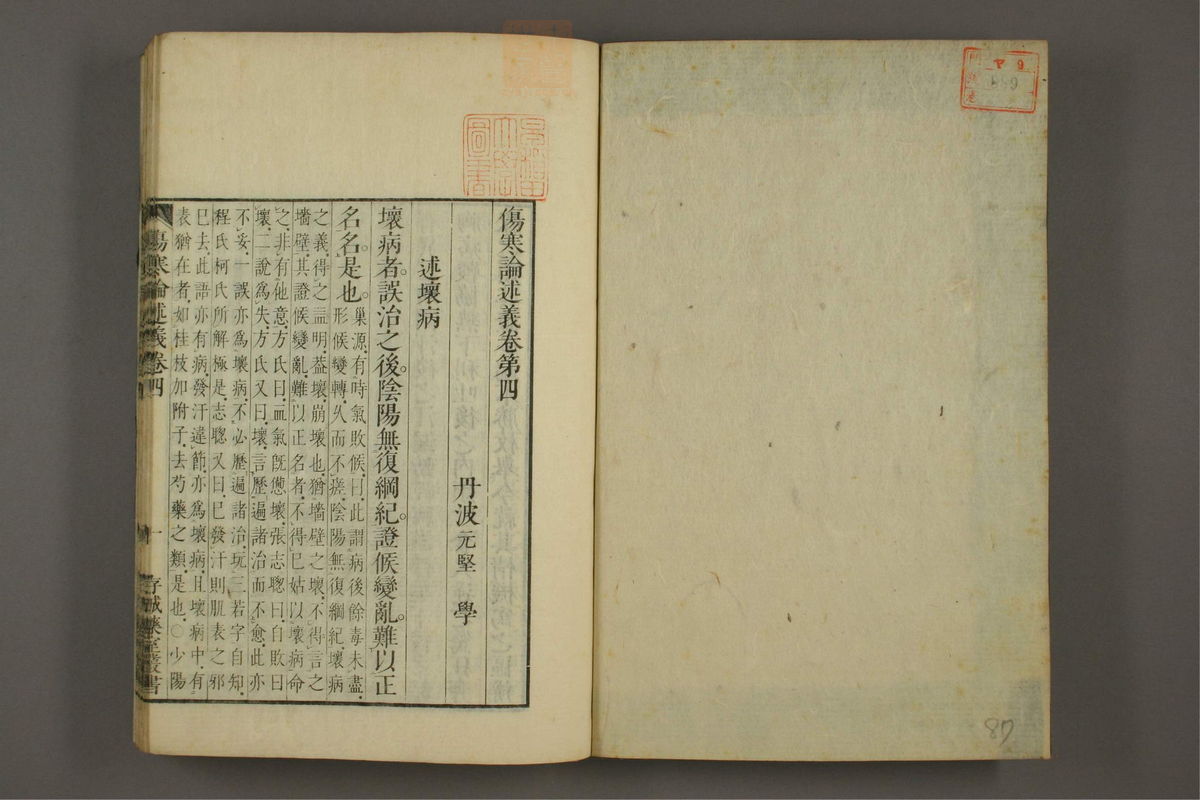 傷寒論述義卷第四
丹波元堅 學
述壞病
壞病者。誤治之後。陰陽無復綱紀。證候變亂。難以正
名名。是也。
巢源有時氣敗候曰。此謂病後餘毒未盡。
形候變轉。久而不瘥。陰陽無復綱紀。壞病
之義。得之益明。蓋壞。崩壞也。猶墻壁之壞。不得言之
墻壁。其證候變亂。難以正名者。不得已姑以壞病命
之。非有他意。方氏曰。血氣既憊壞。張志聰曰。自敗曰
壞。二說爲失。方氏又曰。壞。言歷遍諸治而不愈。此亦
不妥。一誤亦爲壞病。不必歷遍諸治。玩三若字自知。
程氏柯氏所解極是。志聰又曰。已發汗則肌表之邪
已去。此語亦有病。發汗違節。亦爲壞病。且壞病中。有
表猶在者。如桂枝加附子。去芍藥之類。是也。○少陽
傷寒論述義卷四
一
存誠藥室叢書
圖書
P 9
87